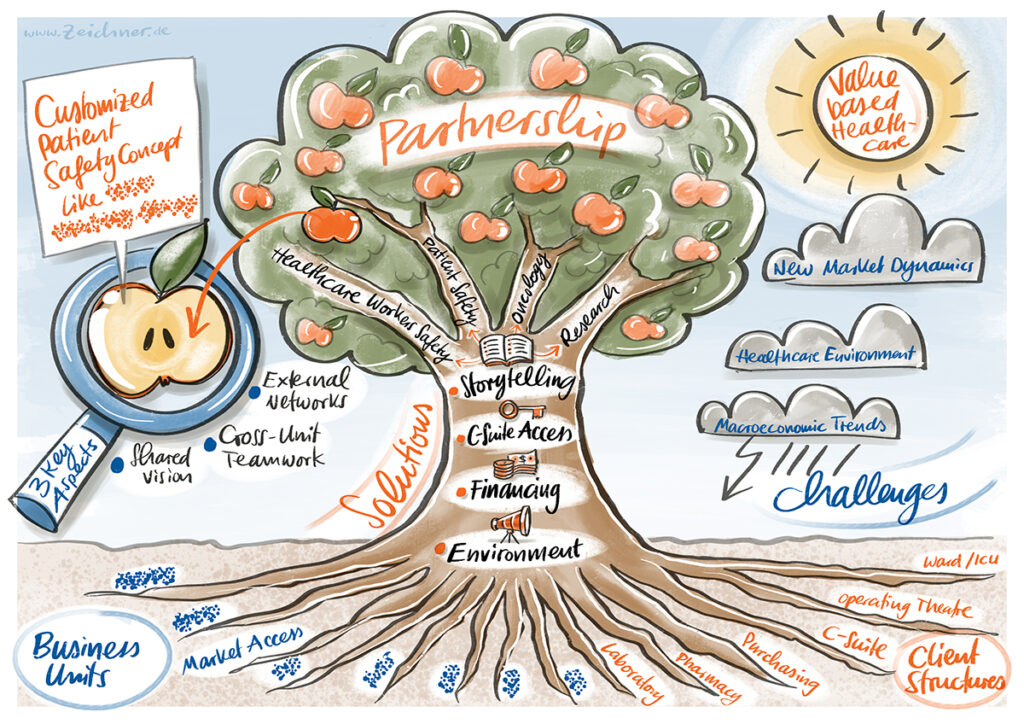 www.zeichner.de
Customized
Patient
Safety Concept
like
Partnership
Value
based
Health-
care
New Market Dynamics
Healthcare Environment
Macroeconomic Trends
Challenges
Healthcare Worker Safety
Patient Safety
Oncology
Research
Storytelling
C-Suite Access
Financing
$
Environment
Solutions
3 Key
Aspects
External
Networks
Cross-Unit
Teamwork
Shared
Vision
Business
Units
Market Access
Laboratory
Pharmacy
Purchasing
C-Suite
Operating Theatre
Ward / ICU
Client
Structures